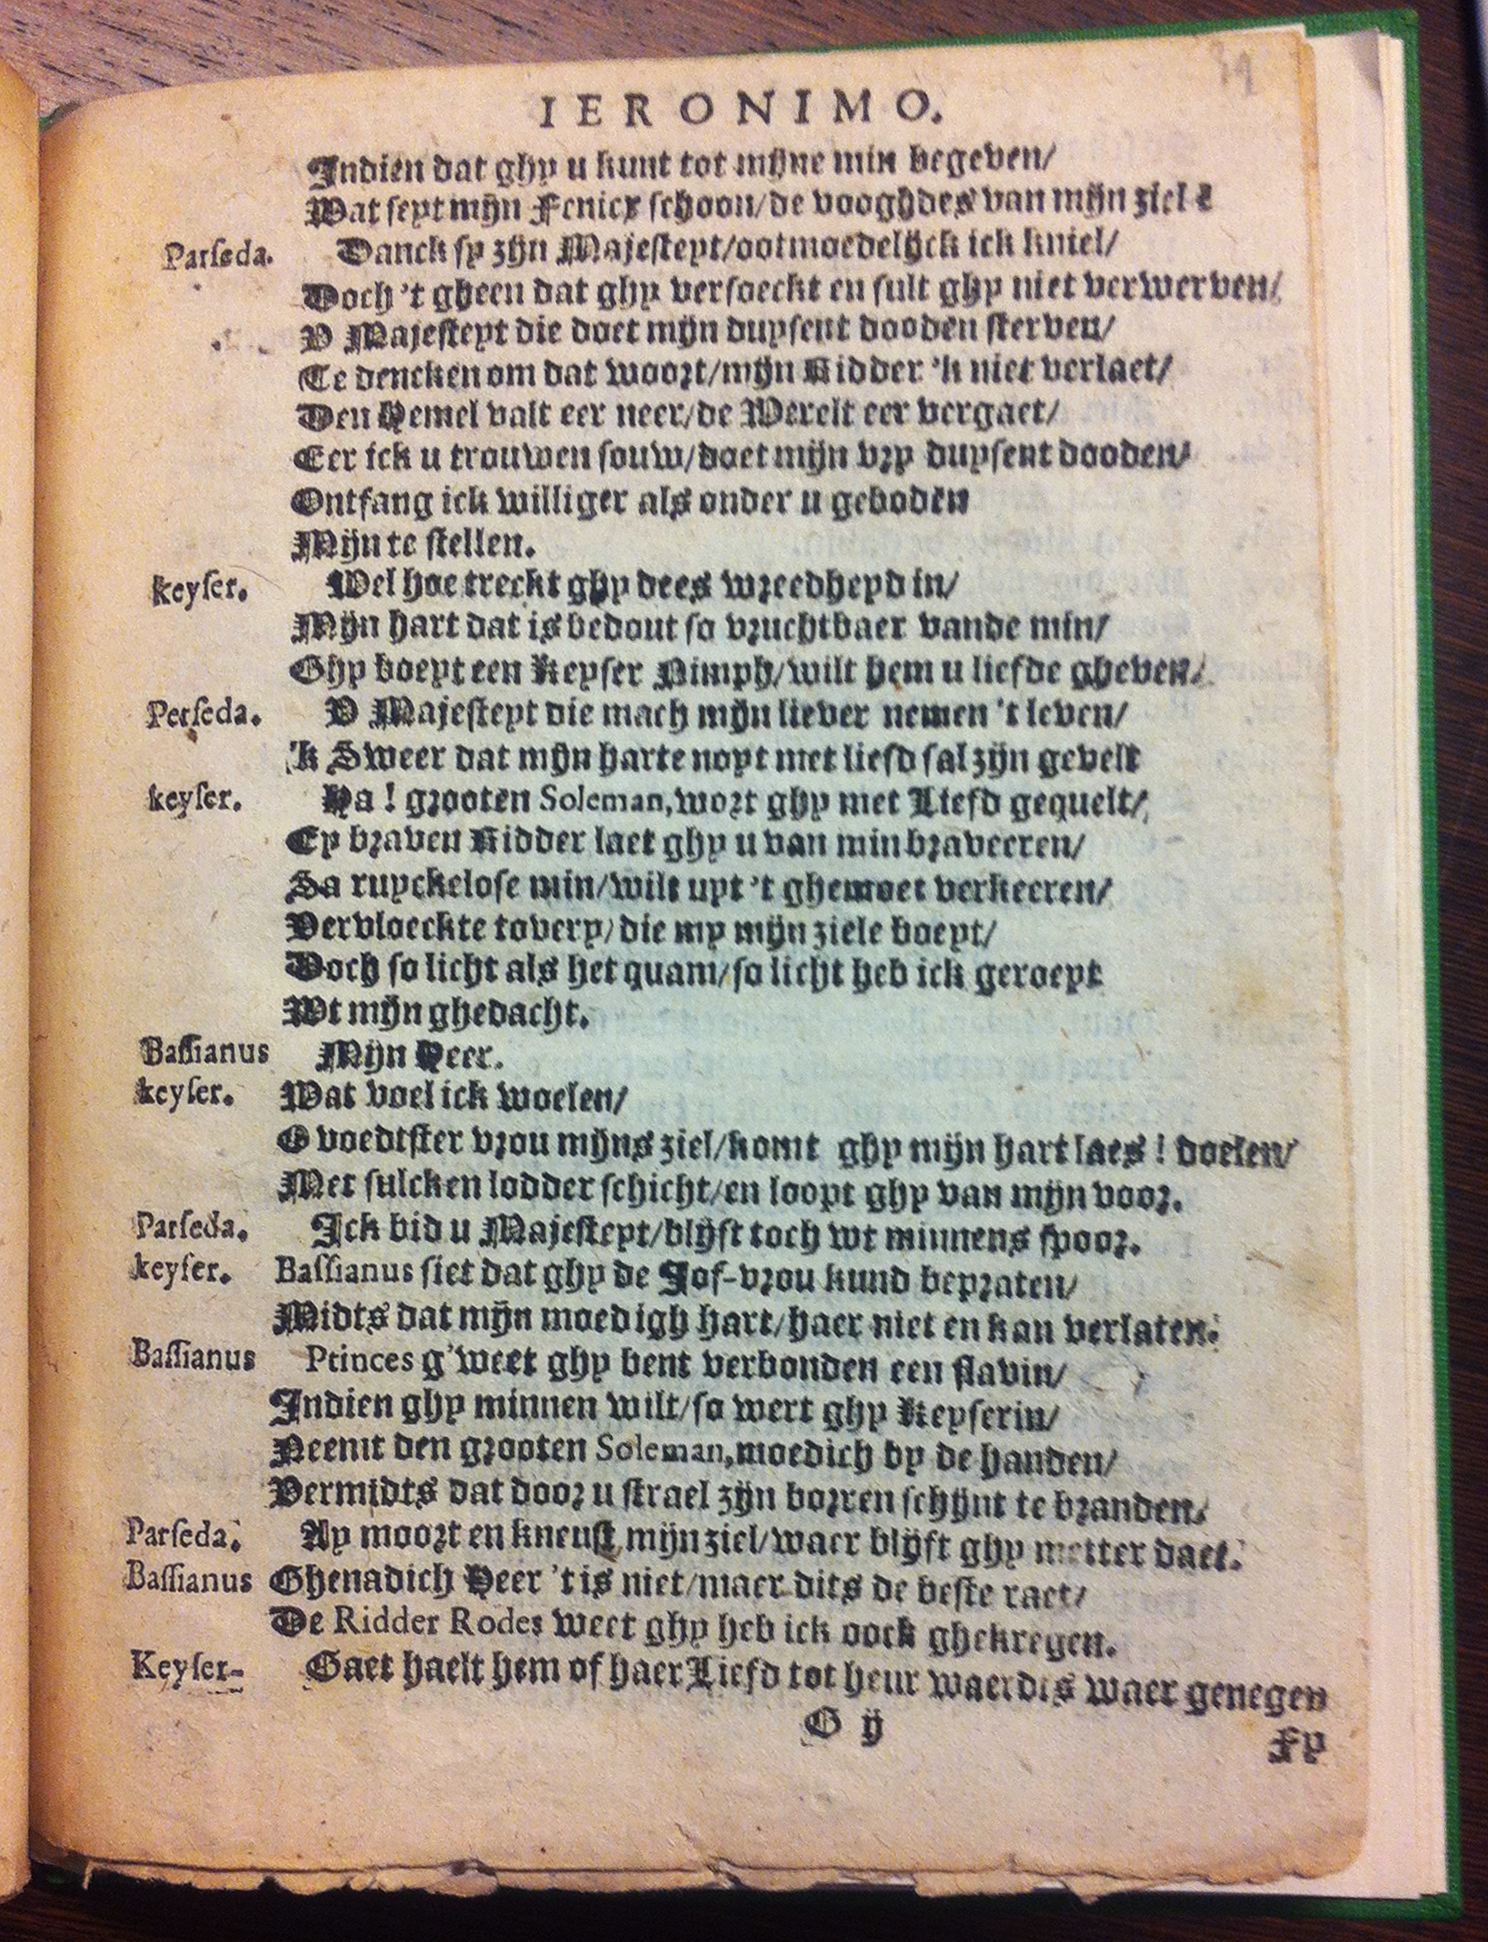 IERONIMO.
Indien dat ghy u kunt tot mijne min begeven/
Wat seyt mijn Fenicx schoon/de vooghdes van mijn ziel?
Parseda. Danck sy zijn Majesteyt/ootmoedelijck ick kniel/
Doch 't gheen dat ghy versoeckt en sult ghy niet verwerven/
V Majesteyt die doet mijn duysent dooden sterven/
Te dencken om dat woort/mijn Ridder 'k niet verlaet/
Den Hemel valt eer neer/de Werelt eer vergaet/
Eer ick u trouwen souw/doet mijn vry duysent dooden/
Ontfang ick williger als onder u geboden
Mijn te stellen.
keyser. Wel hoe treckt ghy dees wreedheyd in/
Mijn hart dat is bedout so vruchtbaer vande min/
Ghy boeyt een Keyser Nimph/wilt hem u liefde gheven/
Perseda. V Majesteyt die mach mijn liever nemen 't leven/
'k Sweer dat mijn harte noyt met liefd sal zijn gevelt
keyser. Ha! grooten Soleman, wort ghy met Liefd gequelt/
Ey braven Ridder laet ghy u van min braveeren/
Sa ruyckelose min/wilt uyt 't ghemoet verkeeren/
Vervloeckte tovery/die my mijn ziele boeyt/
Doch so licht als het quam/so licht heb ick geroeyt
Wt mijn ghedacht.
Bassianus Mijn Heer.
keyser. Wat voel ick woelen/
O voedtster vrou mijns ziel/komt ghy mijn hart laes! doelen/
Met sulcken lodder schicht/en loopt ghy van mijn voor.
Parseda. Ick bid u Majesteyt/blijft toch wt minnens spoor.
keyser. Bassianus siet dat ghy de Jof-vrou kund bepraten/
Midts dat mijn moedigh hart/haer niet en kan verlaten.
Bassianus Ptinces g'weet ghy bent verbonden een slavin/
Indien ghy minnen wilt/so wert ghy Keyserin/
Neemt den grooten Soleman, moedich by de handen/
Vermidts dat door u strael zijn borren schijnt te branden/
Parseda. Ay moort en kneust mijn ziel/waer blijft ghy metter daet.
Bassianus Ghenadich Heer 't is niet/maer dits de beste raet/
De Ridder Rodes weet ghy heb ick oock ghekregen.
Keyser- Gaet haelt hem of haer Liefd tot heur waerdts waer genegen
G ij
Sy